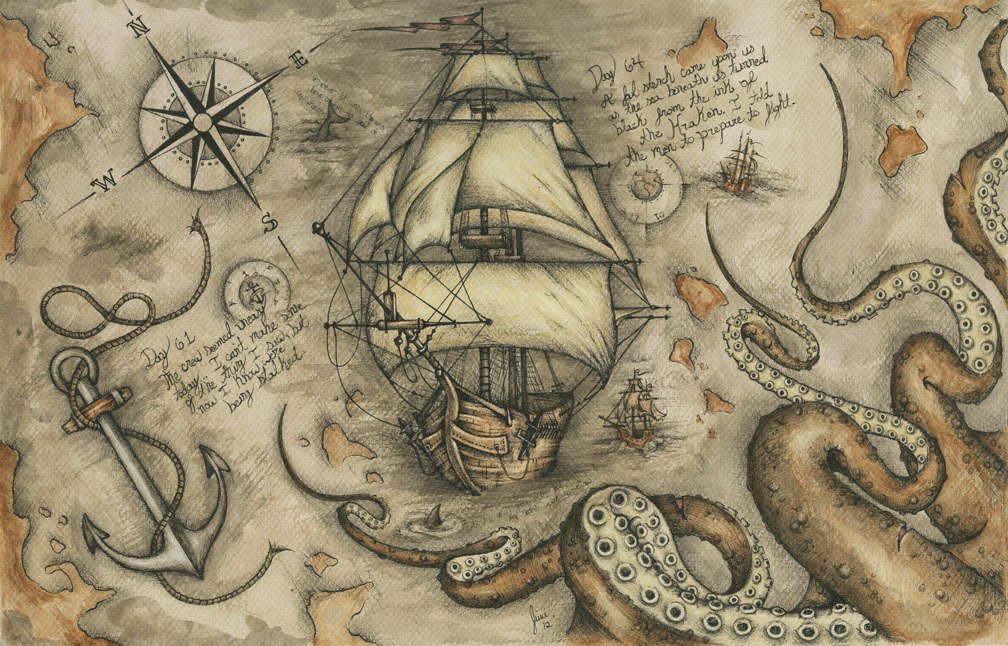 N
E
W
S
Day 64
A fol stench came upon us
as the sea beneath us turned
black from the ink of
the Kraken. I told
the men to prepare to fight.
Day 61
The crew seemed uneasy
today. I can't make sense
of the things I saw but
now I know we're
being stalked.
12